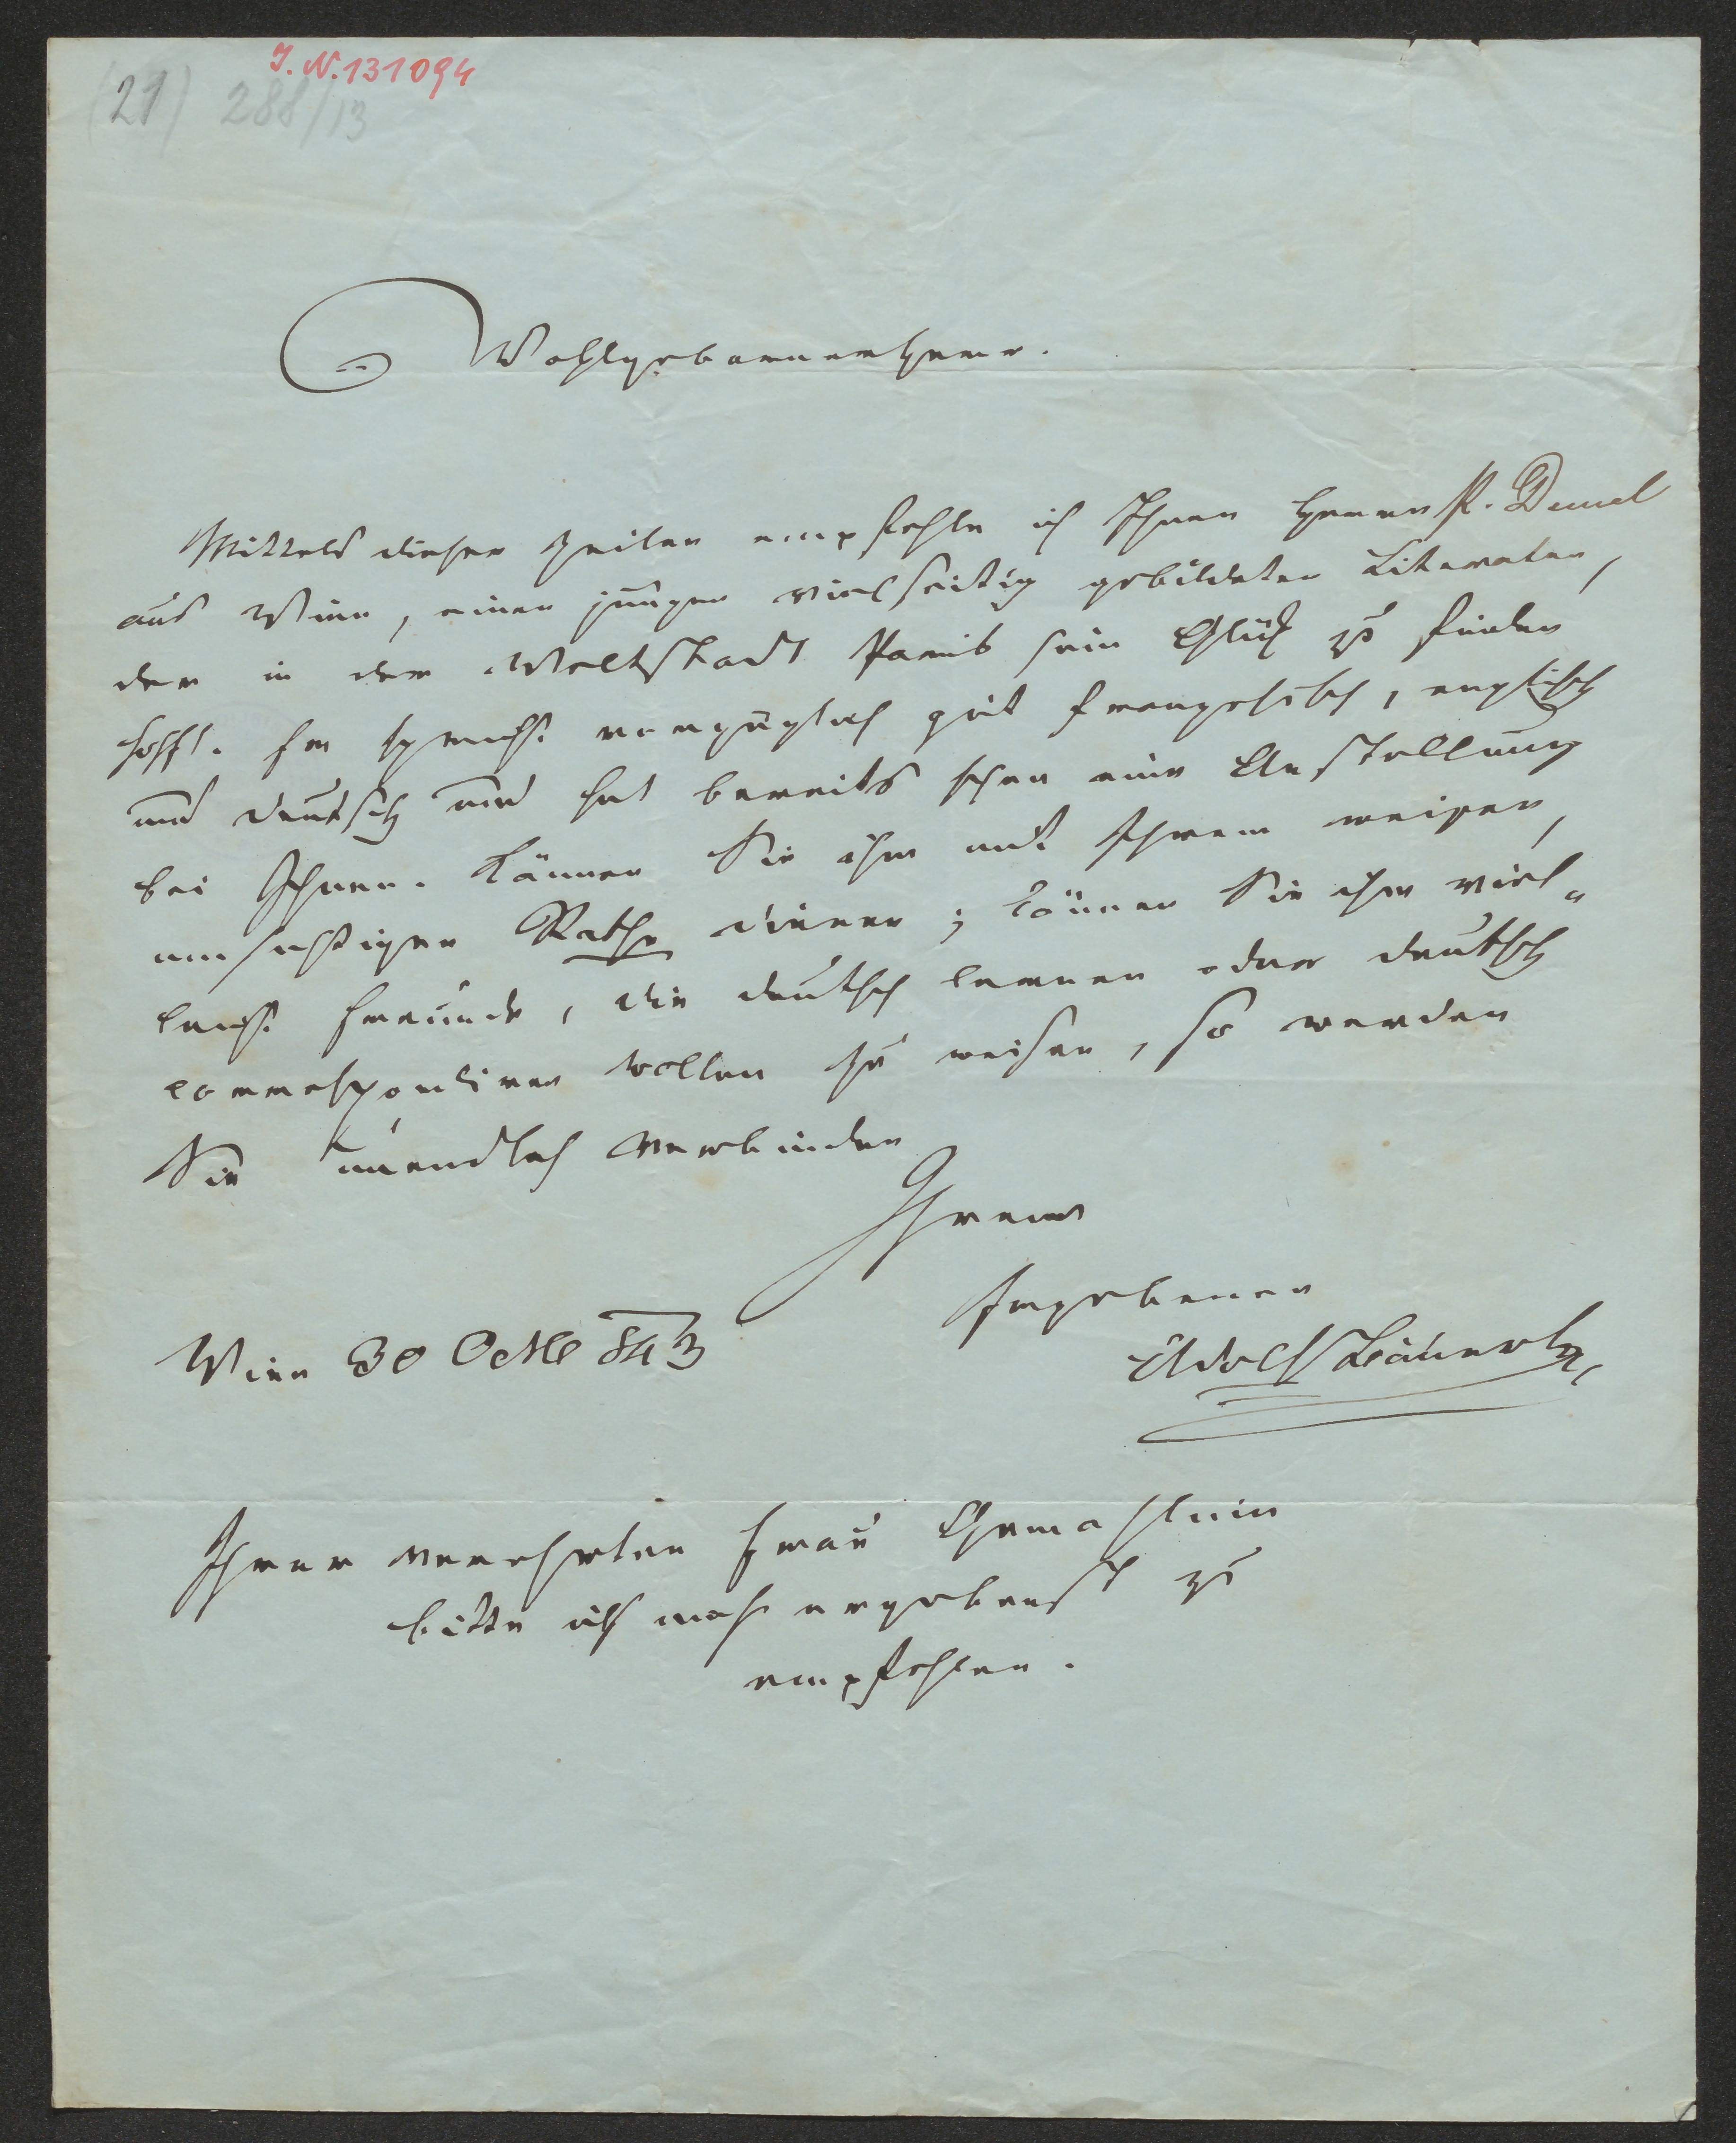 J. N. 131094
(21) 288/13
Wohlgebornerherr.
Mittels dieser Zeilen empfehle ich Ihnen Herrn P. Demel
aus Wien, einen jungen vielseitig gebildeten Literaten,
der in der Weltstadt Paris sein Glück zu finden
hofft. Er spricht vorzüglich gut französisch, englisch
und deutsch und hat bereits schon eine Anstellung
bei Ihnen. Können Sie ihm mit Ihrem weisen,
umsichtigen Rathe dienen; können Sie ihm viel-
leicht Freunde, die deutsch lernen oder deutsch
correspondiren wollen zu weisen, so werden
Sie unendlich verbinden
Ihren
Ergebenen
Wien 30 Octbr 843
Adolf Bäuerle
Ihrer verehrten Frau Gemahlin
bitte ich mich ergebenst zu
empfehlen.